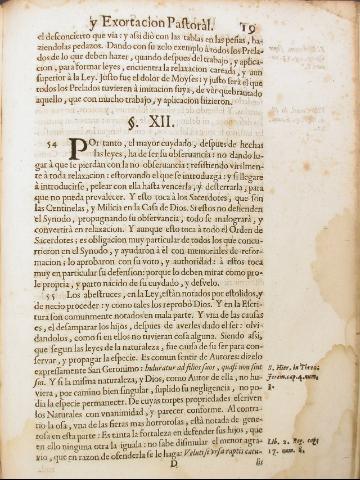 y Exortacion Pastoràl. 19
el desconcierto que via: y asi diò con las tablas en las peñas, ha-
ziendolas pedazos. Dando con su zelo exemplo à todos los Prela-
dos de lo que deben hazer, quando despues del trabajo, y aplica-
cion, para formar leyes, encuentra la relaxacion careada, y aun
superior à la Ley. Justo fue el dolor de Moyses: y justo serà el que
todos los Prelados tuvieren à imitacion suya, de vèr quebrantado
aquello, que con mucho trabajo, y aplicacion hizieron.
§. XII.
54 POr tanto, el mayor cuydado, despues de hechas
las leyes, ha de ser su observancia: no dando lu-
gar à que se pierdan con la no observancia: resistiendo virilmen-
te à toda relaxacion: estorvando el que se introduzga: y si llegare
à introducirse, pelear con ella hasta vencerla, y desterrarla, para
que no pueda prevalecer. Y esto toca à los Sacerdotes, que son
las Centinelas, y Milicia en la Casa de Dios. Si estos no defienden
el Synodo, propugnando su observancia, todo se malogrará, y
convertirà en relaxacion. Y aunque esto toca à todo el Orden de
Sacerdotes; es obligacion muy particular de todos los que concu-
rrieron en el Synodo, y ayudaron à el con memoriales de refor-
macion; lo aprobaron con su voto, y authoridad: à estos toca
muy en particular su defension: porque lo deben mirar como pro-
le propria, y parto nàcido de su cuydado, y desvelo.
55 Los abestruces, en la Ley, estàn notados por estolidos, y
de necio proceder: y como tales los reprobò Dios. Y en la Escri-
tura son comunmente notados en mala parte. Y una de las causas
es, el desamparar los hijos, despues de averles dado el ser: olvi-
dandolos, como si en ellos no tuvieran cosa alguna. Siendo assi,
que segun las leyes de la naturaleza, fue causa de su ser para con-
servar, y propagar la especie. Es comun sentir de Autores: dizelo
expressamente San Geronimo: Induratur ad filios suos, quasi non sint
sui. Y si la misma naturaleza, y Dios, como Autor de ella, no hu-
viera, por camino bien singular, suplido su negligencia, no po-
dia la especie permanecer. De cuyas torpes propriedades escriven
los Naturales con unanimidad, y parecer conforme. Al contra-
rio la osa, una de las fieras mas horrorosas, està notada de gene-
rosa en esta parte: Es tanta la fortaleza en defender sus hijos, que
en ello ninguna otra la iguala: no sabe disimular el menor agra-
vio, que en razon de ofenderla se le haga: Veluti si ursa raptis catu-
D lis
S. Hier. in Thren.
Jerem. cap. 4. num.
3.
Lib. 2. Reg. cap.
17. num. 8.